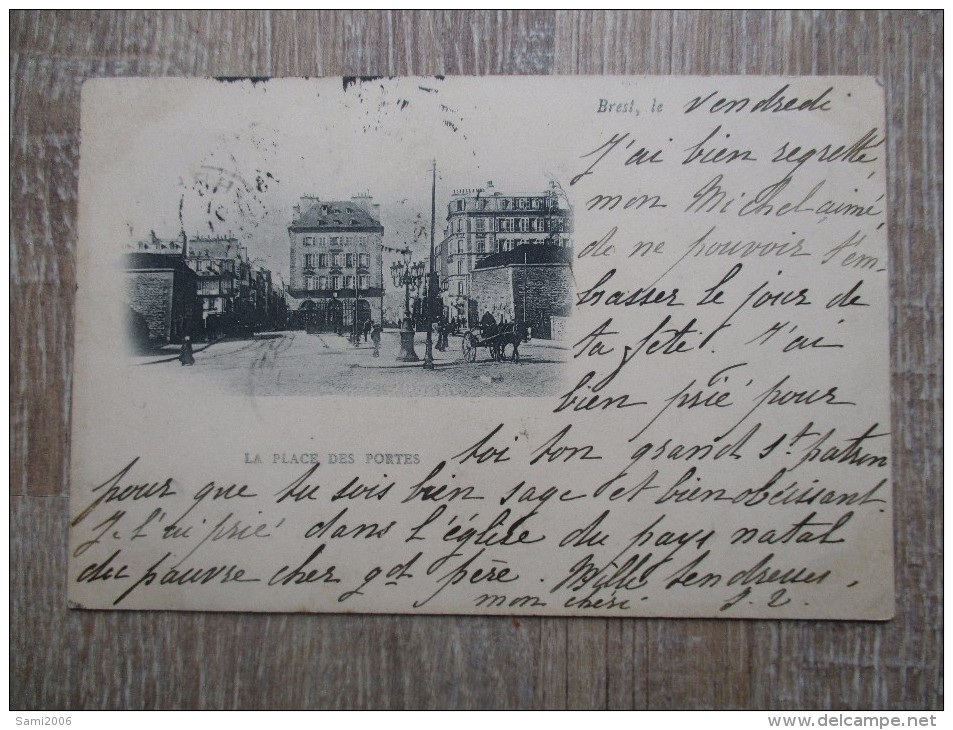 Brest, le vendredi
J'ai bien regretté
mon Michel aimé
de ne pouvoir t'em-
brasser le jour de
ta fête. J'ai
bien prié pour
toi ton grand St patron
LA PLACE DES PORTES
pour que tu sois bien sage et bien obéissant.
Je l'ai prié dans l'église du pays natal
du pauvre cher gd père. Mille tendresses,
mon chéri
Sami2006
delcampe.net